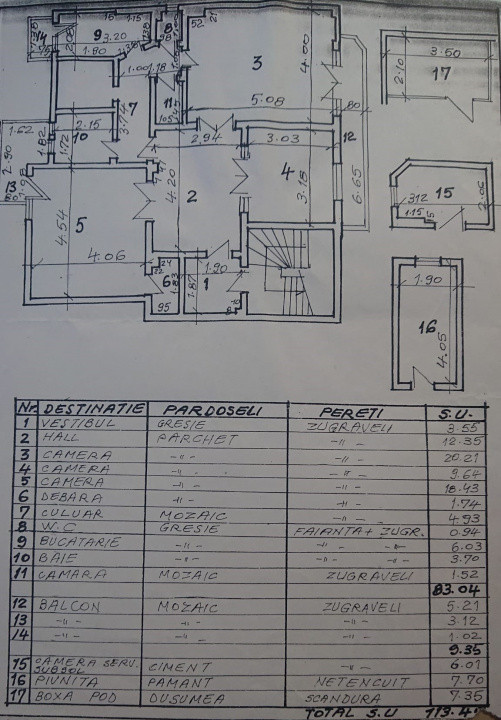 16 1.15
14
9 3.20
8
52 21
1.80
1.00 1.18
3
4.00
3.50
2.10
17
7
11
5.08
80
1.62
10 2.15
3.72
2.94
3.03
12
1.82
1.72
2.90
4
3.18
6.65
15
312
1.15
2.06
13
4.20
2
5
4.54
4.06
24
22
6
1.83
1.90
1
1.87
95
1.90
16
4.05
Nr. DESTINATIE PARDOSELI PERETI S.U.
1 VESTIBUL GRESIE ZUGRAVELI 3.55
2 HALL PARCHET -"- 12.35
3 CAMERA -"- -"- 20.21
4 CAMERA -"- -"- 9.64
5 CAMERA -"- -"- 18.43
6 DEBARA -"- -"- 1.74
7 CULUAR MOZAIC -"- 4.93
8 W.C GRESIE FAIANTA + ZUGR. 0.94
9 BUCATARIE -"- -"- -"- 6.03
10 BAIE -"- -"- -"- 3.70
11 CAMARA MOZAIC ZUGRAVELI 1.52
83.04
12 BALCON MOZAIC ZUGRAVELI 5.21
13 -"- -"- -"- 3.12
14 -"- -"- -"- 1.02
9.35
15 CAMERA SERV. SUBSOL CIMENT -"- 6.01
16 PIVNITA PAMANT NETENCUIT 7.70
17 BOXA POD DUSUMEA SCANDURA 7.35
TOTAL S.U 113.4